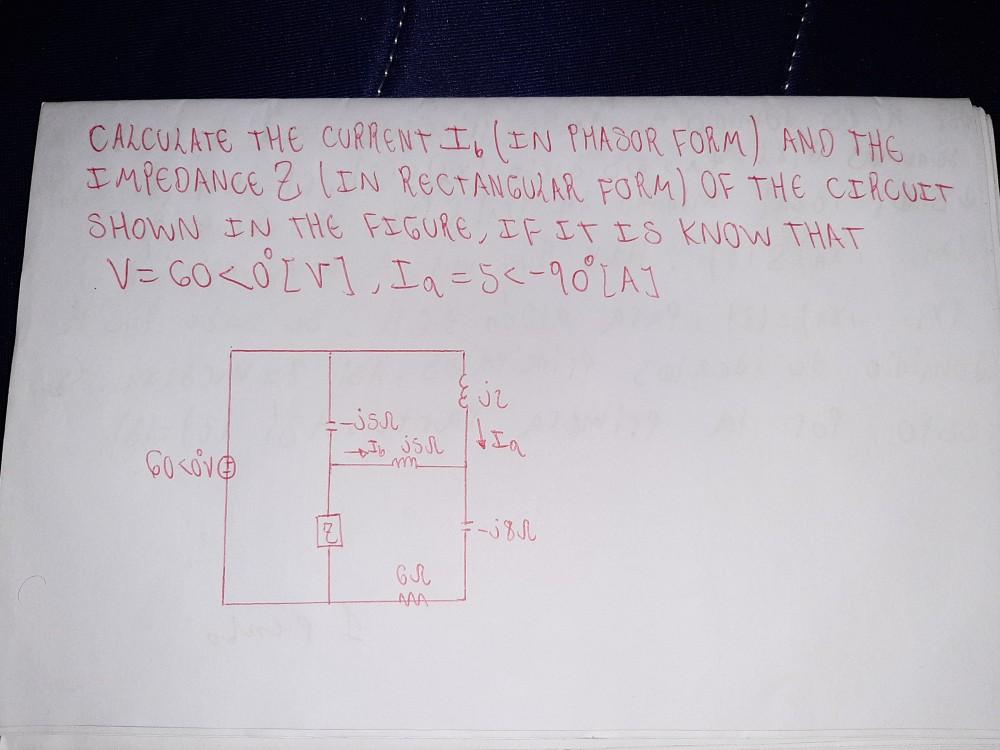 CALCULATE THE CURRENT I_b (IN PHASOR FORM) AND THE
IMPEDANCE Z (IN RECTANGULAR FORM) OF THE CIRCUIT
SHOWN IN THE FIGURE, IF IT IS KNOW THAT
V=60<0°[V], Ia=5<-90°[A]
j2
-j5Ω
Ib j5Ω
Ia
60<0°V
Z
-j8Ω
6Ω